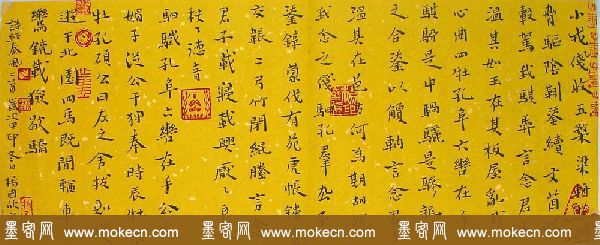 小戎俴收五楘梁輈
脅驅陰靷鋈續文茵
轂駕我騏馵言念君
溫其如玉在其板屋亂
心曲四牡孔阜六轡在
騏駵是中騧驪是驂
之合鋈以觼軜言念君
溫其在邑方何為期胡
我念之俴駟孔羣厹
鋈錞蒙伐有苑虎韔鏤
交韔二弓竹閉緄縢言
君子載寢載興厭
秩秩德音
駟驖孔阜六轡在手公
媚子從公于狩奉時辰牡
牡孔碩公曰左之舍拔則
遊于北園四馬既閑輶車
鸞鑣載獫歇驕
詩經秦風二首歲次甲申冬日
墨客网 墨客网 墨客网 墨客网
www.mokecn.com www.mokecn.com www.mokecn.com www.mokecn.com